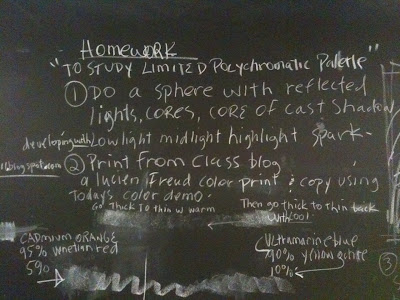 Homework
"To Study Limited Polychromatic Palette"
① Do a sphere with reflected
lights, cores, core of cast shadow
developing with Lowlight midlight highlight spark-
② Print from Class blog
a lucien Freud color print & copy using
Today's color demo.
Go Thick to thin w warm
Then go thick to thin back
with cool
CADMIUM ORANGE
95%
5%
Ultramarine blue
90% yellow ochre
10%
③